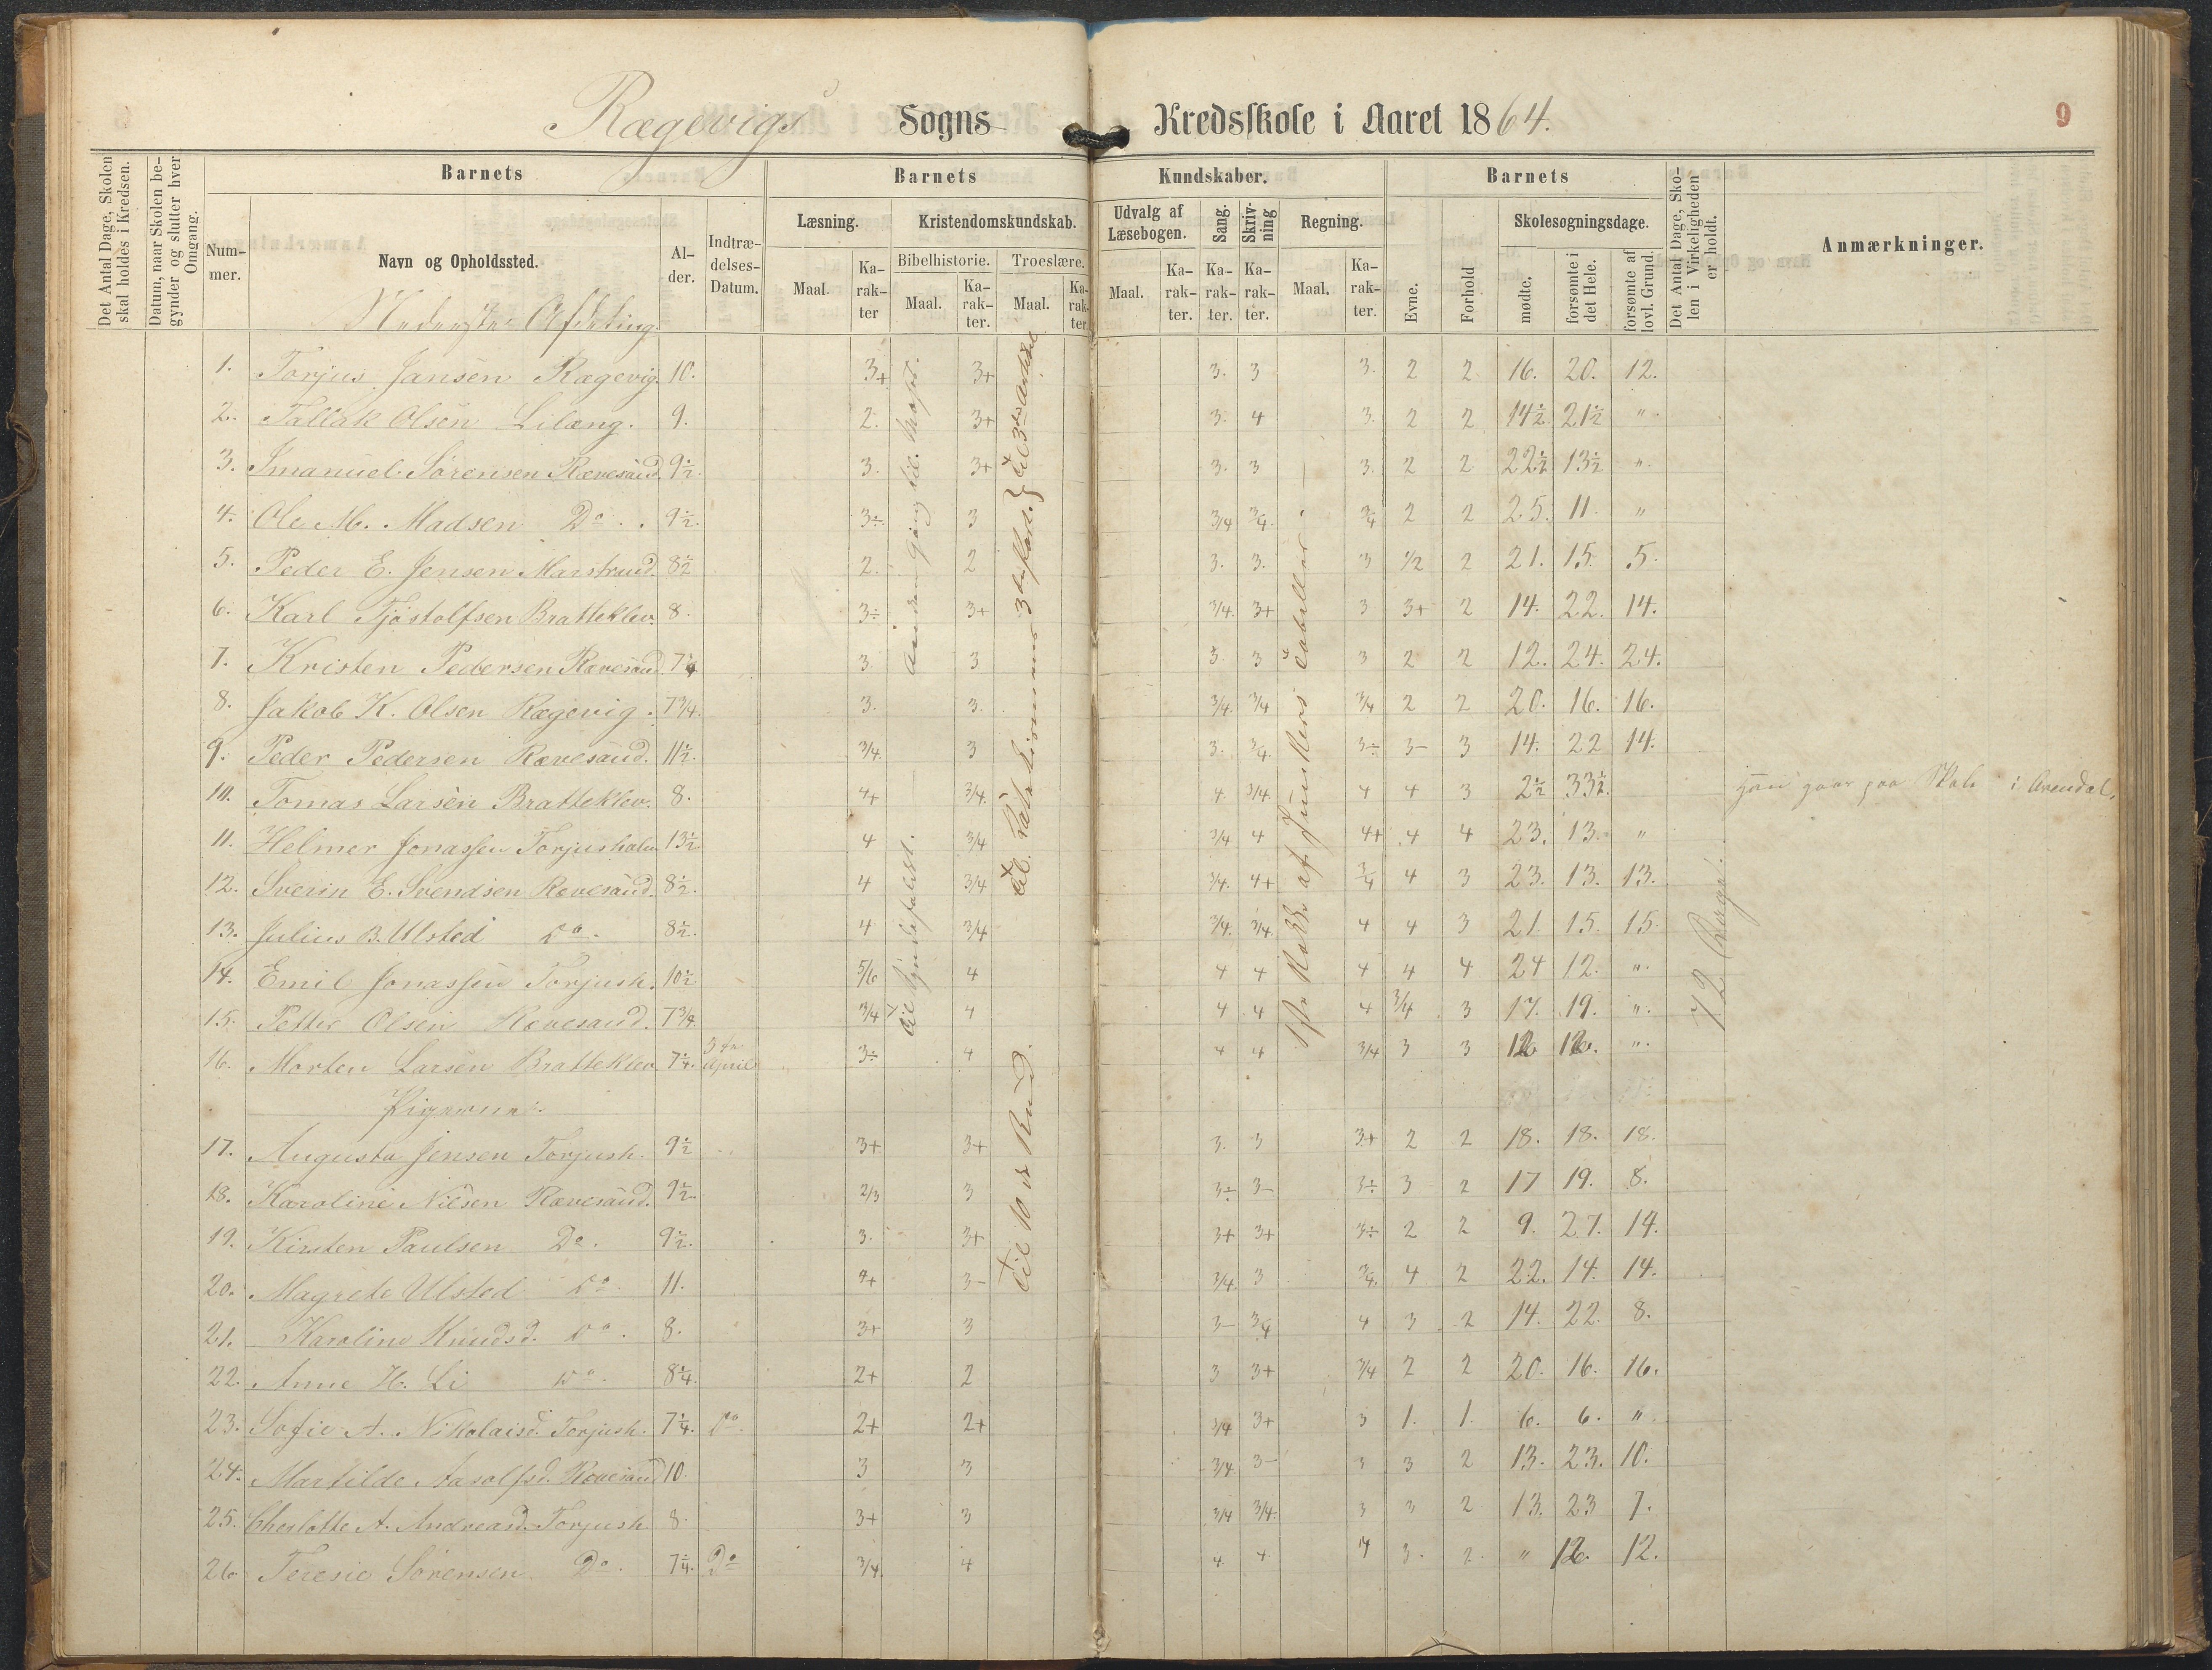 Rægevigs Sogns Kredsskole i Aaret 1864. 9
Det Antal Dage, Skolen skal holdes i Kredsen.
Datum, naar Skolen begynder og slutter hver Omgang.
Barnets Barnets Kundskaber. Barnets
Det Antal Dage, Skolen i Virkeligheden er holdt.
Anmærkninger.
Nummer. Navn og Opholdssted. Alder. Indtrædelses-Datum.
Læsning. Kristendomskundskab. Udvalg af Læsebogen. Sang. Skrivning Regning. Evne. Forhold Skolesøgningsdage.
Bibelhistorie. Troeslære.
Maal. Karakter Maal. Karakter. Maal. Karakter. Maal. Karakter. Karakter. Karakter. Maal. Karakter. mødte. forsømte i det Hele. forsømte af lovl. Grund.
Nederste Afdeling.
1. Torjus Jansen Rægevig. 10. 3+ 3+ 3. 3 3. 2 2 16. 20. 12.
2. Tallak Olsen Lilæng. 9. 2. 3+ 3. 4 3. 2 2 14½ 21½ "
3. Imanuel Sørensen Rævesand 9½. 3. 3+ 3. 3 3. 2 2 22½ 13½ "
4. Ole M. Madsen Do. 9½. 3÷ 3 3/4 3/4 3/4 2 2 25. 11. "
5. Peder E. Jensen Marstrand. 8½ 2. 2 3. 3. 3 1/2 2 21. 15. 5.
6. Karl Tjøstolfsen Bratteklev. 8. 3÷ 3+ 3/4. 3+ 3 3+ 2 14. 22. 14.
7. Kristen Pedersen Rævesand. 7¾ 3. 3 3. 3 3 2 2 12. 24. 24.
8. Jakob K. Olsen Rægevig. 7¾. 3. 3. 3/4. 3/4 3/4 2 2 20. 16. 16.
9. Peder Pedersen Rævesand. 11½. 3/4. 3 3. 3/4. 3÷ 3- 3 14. 22 14.
10. Tomas Larsen Bratteklev. 8. 4+ 3/4. 4. 3/4. 4 4 3 2½ 33½. Han gaar paa Skole i Arendal.
11. Helmer Jonassen Torjusholm 13½ 4 3/4 3/4 4 4+ 4 4 23. 13. "
12. Sverin E. Svendsen Rævesand. 8½. 4 3/4 3/4. 4+ 3/4 4 3 23. 13. 13.
13. Julius B. Ulsted Do. 8½. 4 3/4 3/4. 3/4 4 4 3 21. 15. 15.
14. Emil Jonassen Torjush. 10½ 5/6 4 4 4 4 4 4 24 12. "
15. Petter Olsen Rævesand. 7¾. 3/4 4 4 4 4 3/4 3 17. 19. "
16. Morten Larsen Bratteklev. 7¼. 3die April 3÷ 4 4 4 3/4 3 3 "
Pigerne.
17. Augusta Jensen Torjush. 9½ 3+ 3+ 3. 3 3+ 2 2 18. 18. 18.
18. Karoline Nilsen Rævesand. 9½. 2/3 3 3÷ 3- 3÷ 3 2 17 19. 8.
19. Kirsten Paulsen Do. 9½. 3. 3+ 3+ 3+ 3÷ 2 2 9. 27. 14.
20. Magrete Ulsted Do. 11. 4+ 3- 3/4. 3 3/4. 4 2 22. 14. 14.
21. Karoline Knudsd. Do. 8. 3+ 3 3- 3/4 4 3 2 14. 22. 8.
22. Anne H. Li Do. 8¼. 2+ 2 3 3+ 3/4 2 2 20. 16. 16.
23. Sofie A. Nikolaisd. Torjush. 7¼. Do. 2+ 2+ 3/4 3+ 3 1. 1. 6. 6. "
24. Martilde Aasolfsd. Rævesand 10. 3 3 3/4. 3- 3 3 2 13. 23. 10.
25. Cherlotte A. Andreasd. Torjush 8. 3+ 3 3/4 3/4. 3 3 2 13. 23 7.
26. Teresie Sørensen Do. 7¼. Do 3/4. 4 4. 4. 4 3. 2. " 12. 12.
anden Gang til
til Syndefaldet.
til 3die Artikel
til 10de Bud.
1ste Række af Junkers Tabeller
72 Dage.